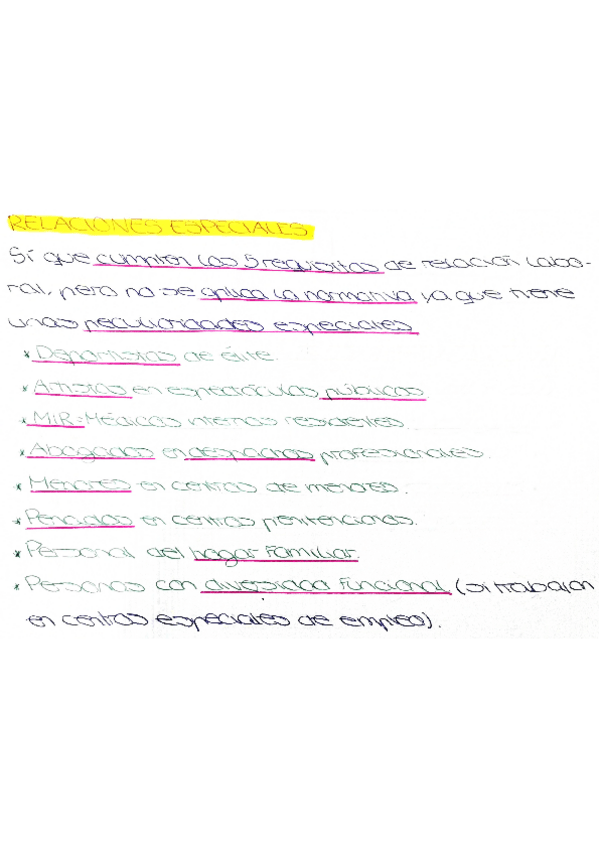 RELACIONES ESPECIALES
Sí que cumplen los 5 requisitos de relación labo-
ral, pero no se aplica la normativa ya que tiene
unas peculiaridades especiales
* Deportistas de élite.
* Artistas en espectáculos públicos
* MIR: Médicos internos residentes.
* Abogados en despachos profesionales.
* Menores en centros de menores.
* Penados en centros penitenciarios.
* Personal del hogar familiar.
* Personas con diversidad funcional (si trabajan
en centros especiales de empleo).